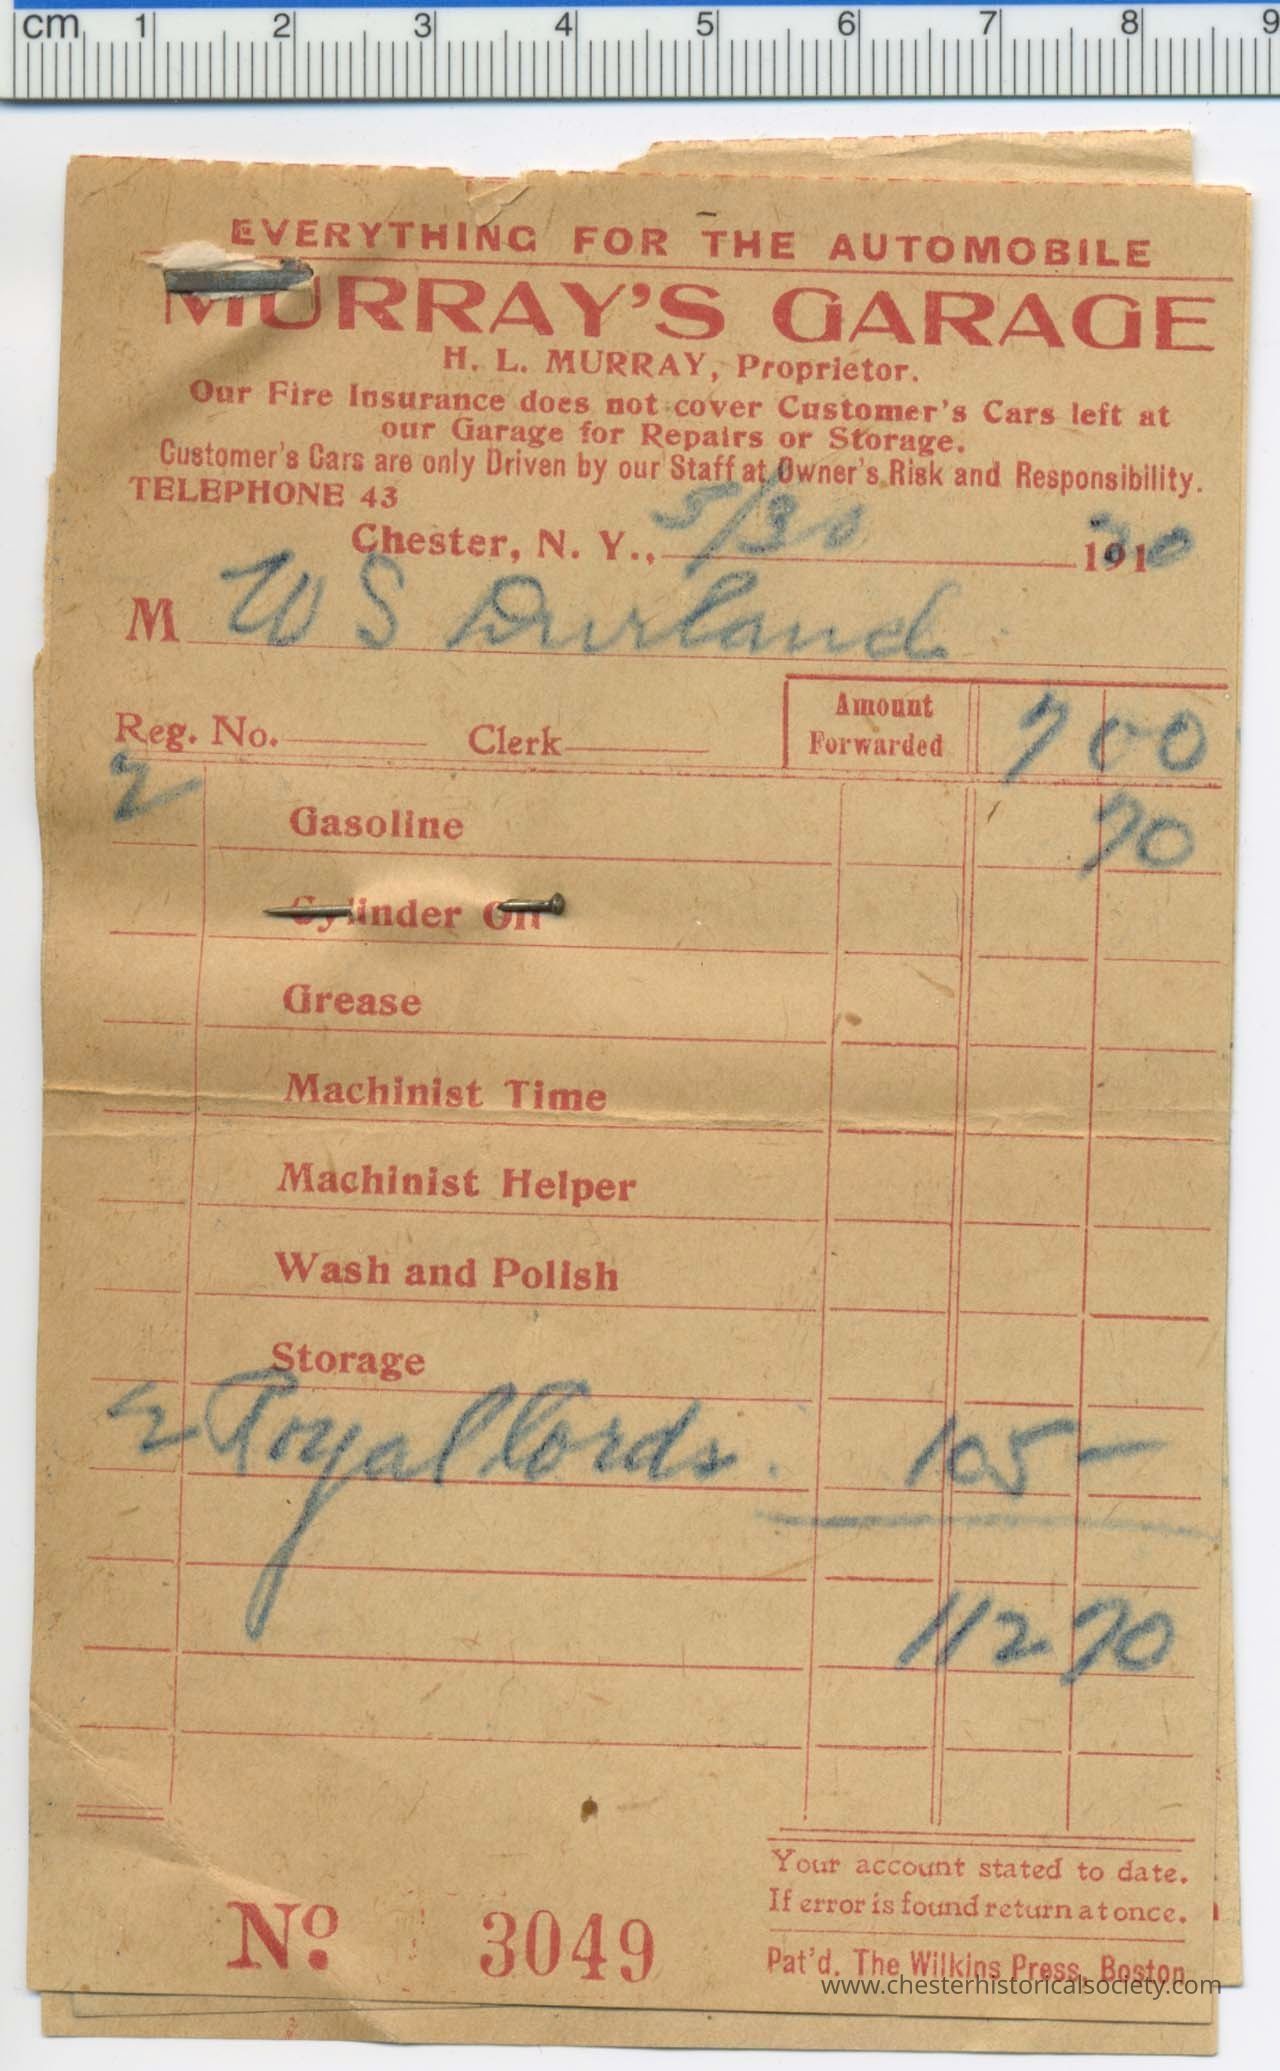 cm 1 2 3 4 5 6 7 8 9
EVERYTHING FOR THE AUTOMOBILE
MURRAY'S GARAGE
H. L. MURRAY, Proprietor.
Our Fire Insurance does not cover Customer's Cars left at
our Garage for Repairs or Storage.
Customer's Cars are only Driven by our Staff at Owner's Risk and Responsibility.
TELEPHONE 43
Chester, N. Y., 5/30 1920
M W S Durland
Reg. No. Clerk Amount Forwarded 7 00
2 Gasoline 70
Cylinder Oil
Grease
Machinist Time
Machinist Helper
Wash and Polish
Storage
2 Royal Cords. 105 —
112 70
Your account stated to date.
If error is found return at once.
No. 3049
Pat'd. The Wilkins Press, Boston
www.chesterhistoricalsociety.com